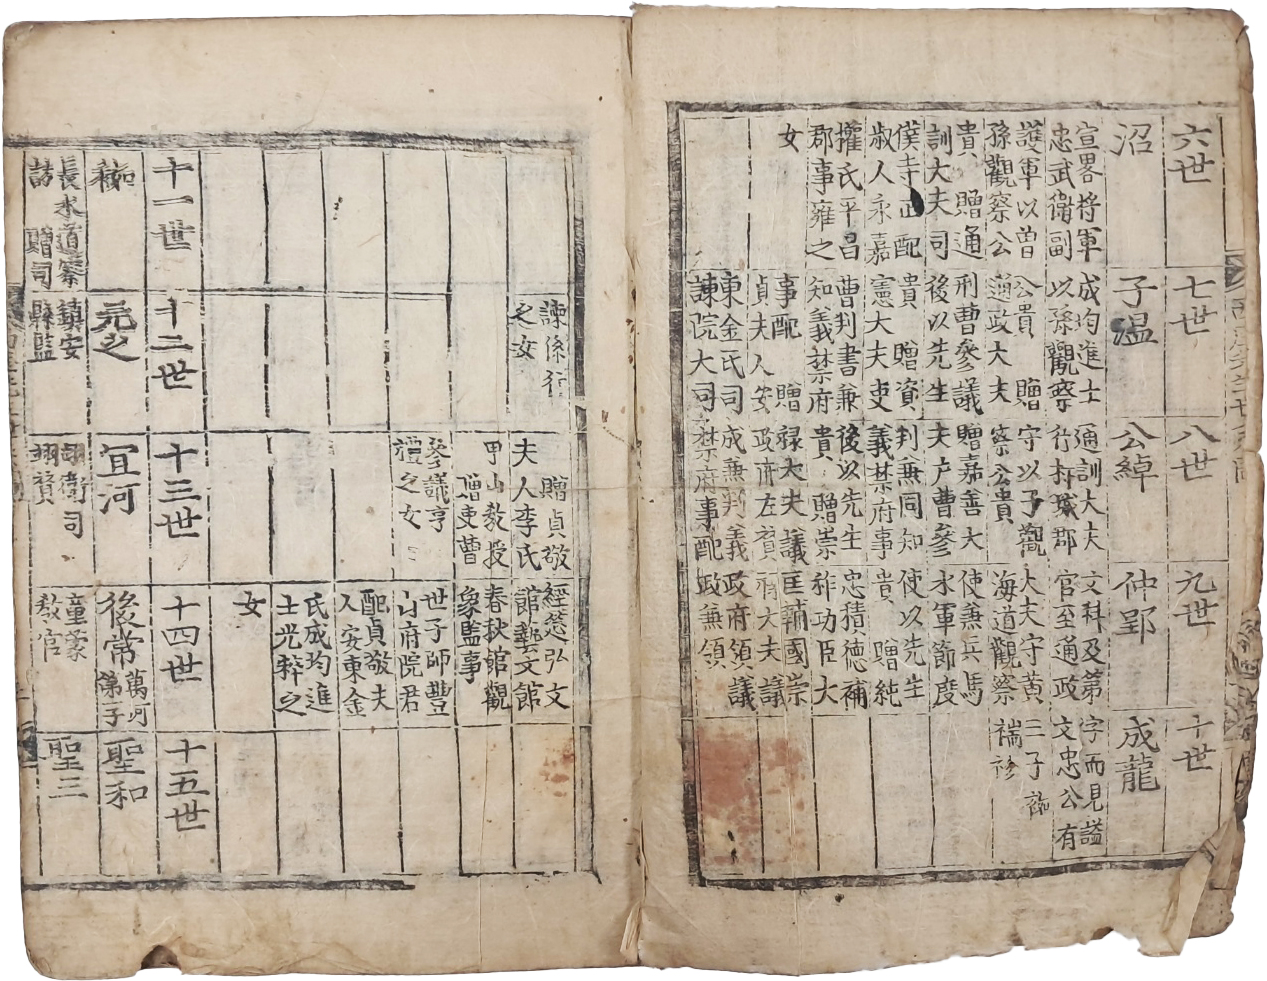 六世
沼
宣畧将軍
忠武衛副
護軍以曽
孫觀察公
貴 贈通
訓大夫司
僕寺正配
淑人永嘉
權氏平昌
郡事雍之
女
七世
子温
成均進士
以孫觀察
公貴 贈
通政大夫
刑曹參議
後以先生
貴 贈資
憲大夫吏
曹判書兼
知義禁府
事配 贈
貞夫人安
東金氏司
諫院大司
八世
公綽
通訓大夫
行杆城郡
守以子觀
察公貴
贈嘉善大
夫户曹參
判兼同知
義禁府事
後以先生
貴 贈崇
祿大夫議
政府左賛
成兼判義
禁府事配
九世
仲郢
文科及第
官至通政
大夫守黄
海道觀察
使兼兵馬
水軍節度
使以先生
貴 贈純
忠積德補
祚功臣大
匡輔國崇
祿大夫議
政府領議
政兼領
十世
成龍
字而見謚
文忠公有
三子 袽
褍袗
諫係行
之女
贈貞敬
夫人李氏
甲山敎授
贈吏曹
參議亨
禮之女
經莚弘文
館藝文館
春秋館觀
象監事
世子師豐
山府院君
配貞敬夫
人安東金
氏成均進
士光粹之
女
十一世
袽
長水道察
訪 贈司
十二世
元之
鎮安
縣監
十三世
宜河
翊衛司
翊賛
十四世
後常 萬河
第子
童蒙
敎官
十五世
聖和
聖三